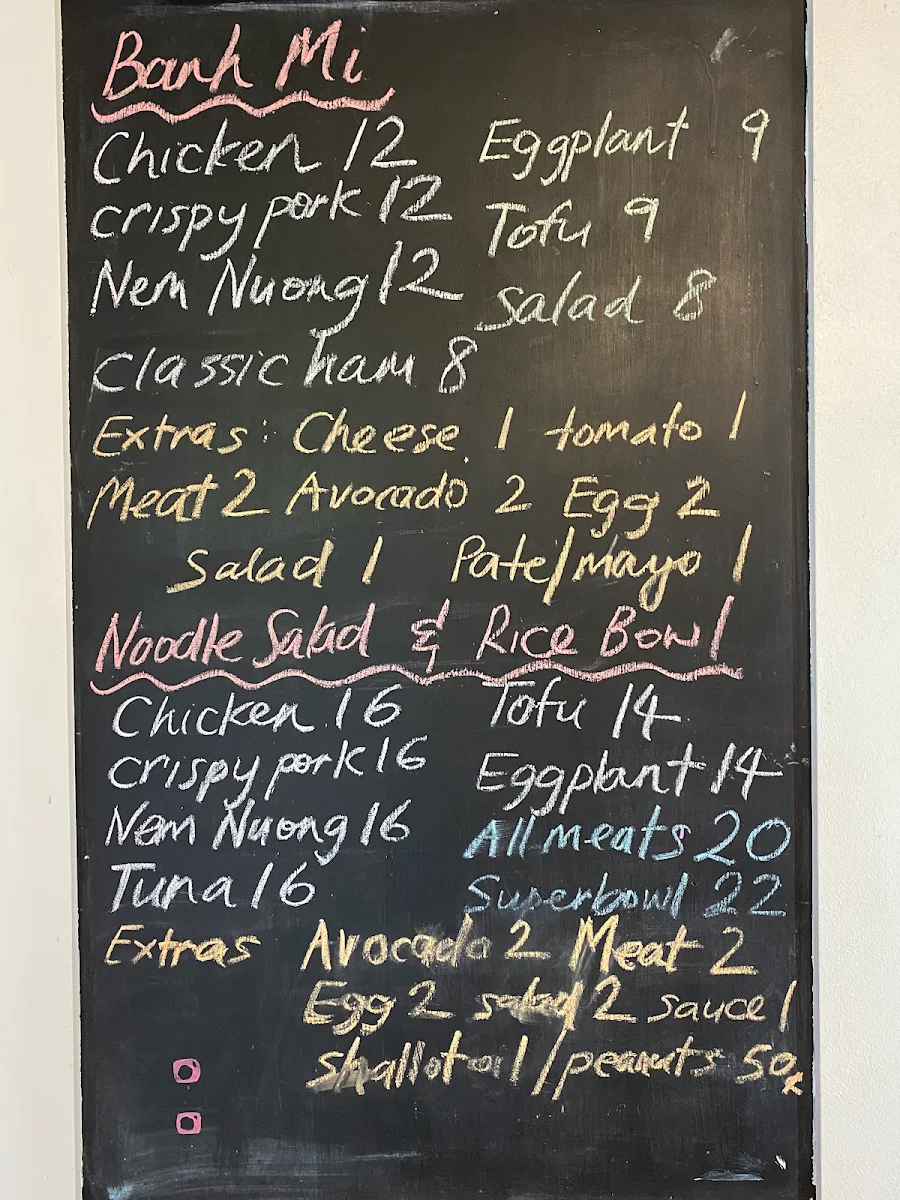 Banh Mi
Chicken 12 Eggplant 9
crispy pork 12 Tofu 9
Nem Nuong 12 Salad 8
classic ham 8
Extras: Cheese 1 tomato 1
Meat 2 Avocado 2 Egg 2
Salad 1 Pate/mayo 1
Noodle Salad & Rice Bowl
Chicken 16 Tofu 14
crispy pork 16 Eggplant 14
Nem Nuong 16 All meats 20
Tuna 16 Superbowl 22
Extras Avocado 2 Meat 2
Egg 2 salad 2 sauce 1
shallot oil / peanuts 50